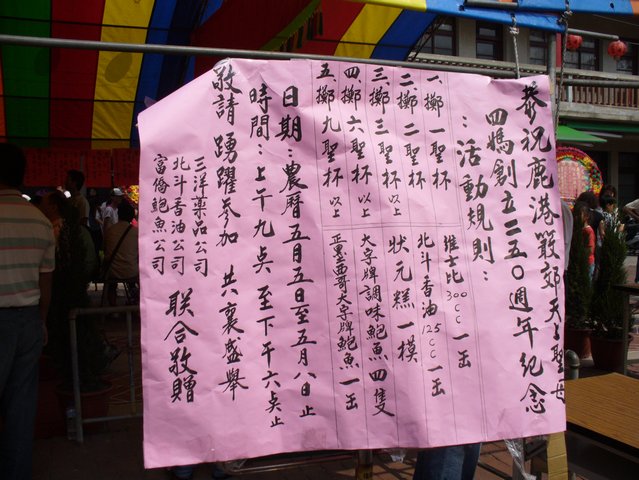 恭祝鹿港䉤郊天上聖母
四媽創立二五0週年紀念
：活動規則：
一.擲一聖杯 維士比300CC一缶
二.擲二聖杯 北斗香油125CC一缶
三.擲三聖杯以上 狀元糕一模
四.擲六聖杯以上 大字牌調味鮑魚四隻
五.擲九聖杯以上 正墨西哥大字牌鮑魚一缶
日期：農曆五月五日至五月八日止
時間：上午九点至下午六点止
敬請踴躍參加 共襄盛舉
三洋藥品公司
北斗香油公司
富僑鮑魚公司
聯合敬贈